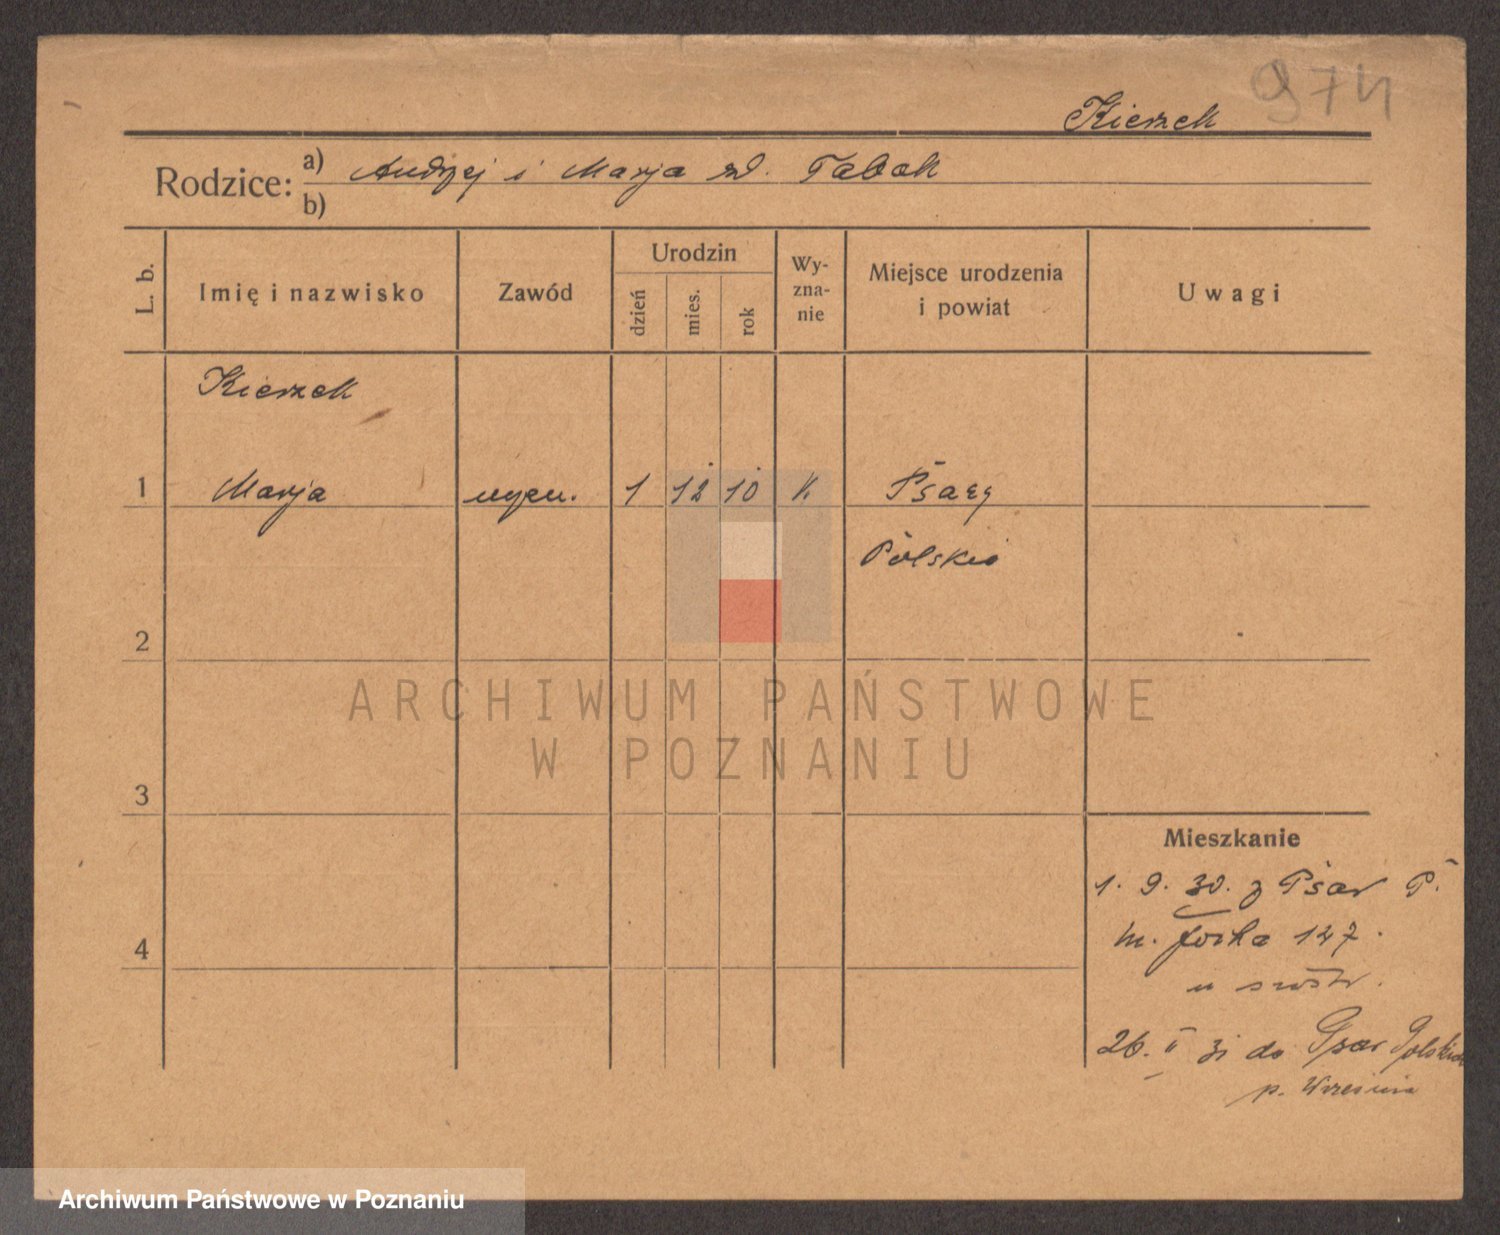 974
Kierzek
Rodzice: a) Andrzej i Marja zd. Tabak
b)
L. b.
Imię i nazwisko
Zawód
Urodzin
dzień
mies.
rok
Wy-
zna-
nie
Miejsce urodzenia
i powiat
Uwagi
Kierzek
1 Marja 1 12 10 k. Psary
Polskie
2
3
4
Mieszkanie
1. 9. 30. z Psar P.
m. 127.
u siostr.
26. II 31 do Psar Polskich
p. Września
ARCHIWUM PAŃSTWOWE
W POZNANIU
Archiwum Państwowe w Poznaniu